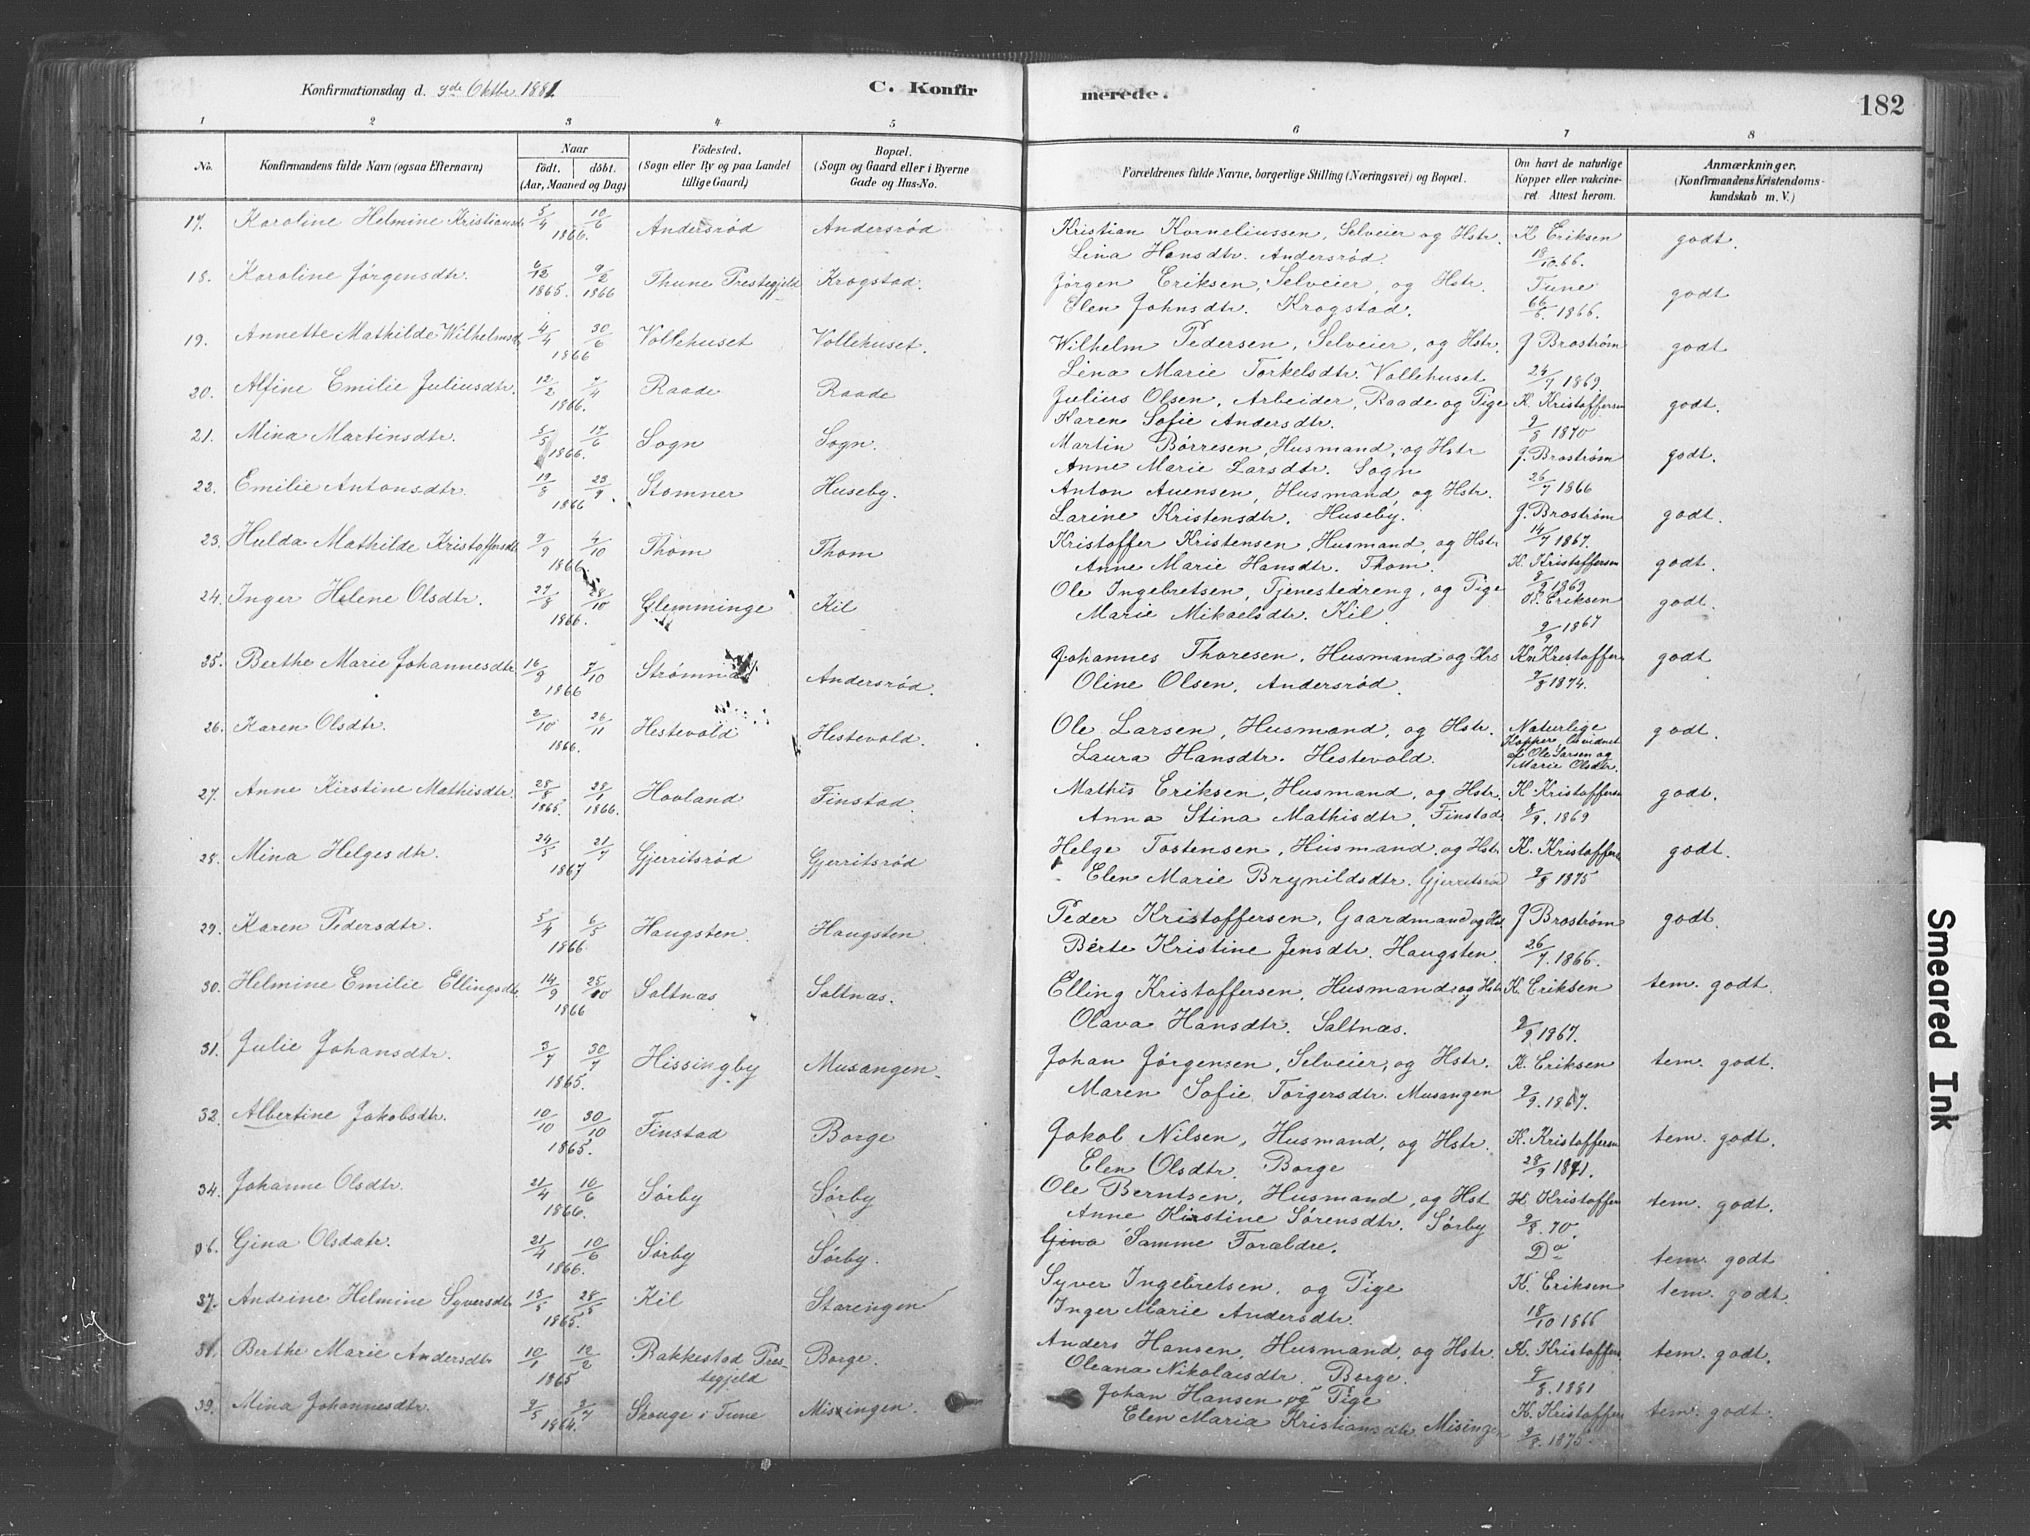 Konfirmationsdag d. 9de Oktbr 1881. C. Konfir merede. 182
1 2 3 4 5 6 7 8
No. Konfirmandens fulde Navn (ogsaa Efternavn) Naar födt. döbt. (Aar, Maaned og Dag) Födested. (Sogn eller By og paa Landet tillige Gaard) Bopæl. (Sogn og Gaard eller i Byerne Gade og Hus-No. Forældrenes fulde Navne, borgerlige Stilling (Næringsvei) og Bopæl. Om havt de naturlige Kopper eller vakcineret Attest herom. Anmærkninger. (Konfirmandens Kristendomskundskab m. V.)
17. Karoline Helmine Kristiansdt 5/4 10/6 1866. Andersrød Andersrød Kristian Korneliussen, Selveier og Hstr. K Eriksen godt.
Lina Hansdtr. Andersrød. 18/10 66.
18. Karoline Jørgensdtr. 6/12 1865. 9/2 1866 Thune Prestegjeld Krogstad. Jørgen Eriksen, Selveier, og Hstr. Tune godt
Elen Johnsdtr. Krogstad. 66/6 1866.
19. Annette Mathilde Wilhelmsdt 4/4 30/6 1866 Vollehuset Vollehuset. Wilhelm Pedersen, Selveier, og Hstr. J Broström godt
Lina Marie Torkelsdtr. Vollehuset 24/7 1869.
20. Alfine Emilie Juliusdtr. 12/2 7/4 1866. Raade Raade Julius Olsen, Arbeider, Raade og Pige K. Kristoffersen godt.
Karen Sofie Andersdtr. 9/8 1870
21. Mina Martinsdtr. 3/5 17/6 1866. Sogn Sogn. Martin Børresen, Husmand, og Hstr J. Broström godt.
Anne Marie Larsdtr. Sogn 26/7 1866
22. Emilie Antonsdtr. 19/8 23/9 1866 Stomner Huseby. Anton Auensen, Husmand, og Hstr. J. Broström godt.
Larine Kristensdtr. Huseby. 14/7 1867.
23. Hulda Mathilde Kristoffersdt 9/9 4/10 1866. Thom Thom Kristoffer Kristensen, Husmand, og Hstr K. Kristoffersen godt.
Anne Marie Hansdtr. Thom. 9/9 1869
24. Inger Helene Olsdtr. 27/8 28/10 1866. Glemminge Kil Ole Ingebretsen, Tjenestedreng, og Pige K. Eriksen godt.
Marie Mikaelsdtr. Kil. 9/9 1867
25. Berthe Marie Johannesdtr 16/8 7/10 1866 Andersrød. Johannes Thoresen, Husmand og Hrs Kn Kristoffer godt
Oline Olsen, Andersrød. 9/8 1874.
26. Karen Olsdtr. 2/10 26/11 1866. Hestevold Hestevold. Ole Larsen, Husmand, og Hstr. Naturlige Kopper, bevidnet af Ole Larsen og Marie Olsdtr. godt.
Laura Hansdtr. Hestevold.
27. Anne Kirstine Mathisdtr. 28/8 1865. 28/1 1866. Hovland Finstad. Mathis Eriksen, Husmand, og Hstr. K Kristoffersen godt.
Anna Stina Mathisdtr, Finstad 8/9. 1869
28. Mina Helgesdtr. 24/5 21/7 1867 Gjerritsrød Gjerritsrød Helge Tostensen, Husmand, og Hstr K. Kristoffers godt.
Elen Marie Brynildsdtr. Gjerritsrød 9/8 1875
29. Karen Pedersdtr. 5/4 6/5 1866. Haugsten. Haugsten. Peder Kristoffersen, Gaardmand og Hst J Broström godt.
Berte Kristine Jensdtr. Haugsten. 26/7. 1866.
30. Helmine Emilie Ellingsdtr 14/9 25/10 1866 Saltnæs Saltnæs. Elling Kristoffersen, Husmand og Hstr K. Eriksen tem. godt.
Olava Hansdtr. Saltnæs. 9/9. 1867.
31. Julie Johansdtr. 3/7 30/7 1865. Hissingby Musangen. Johan Jørgensen, Selveier, og Hstr. K. Eriksen tem. godt.
Maren Sofie Torgersdtr. Musangen 9/9. 1867.
32. Albertine Jakobsdtr. 10/10 30/10 1865. Finstad Borge Jakob Nilsen, Husmand, og Hstr. K. Kristoffersen tem. godt.
Elen Olsdtr. Borge 28/9 1871.
34. Johanne Olsdtr. 21/4 10/6 1866. Sørby Sørby Ole Berntsen, Husmand, og Hst K Kristoffer tem. godt.
Anne Kirstine Sørensdtr. Sørby 9/8. 70.
36. Gina Olsdatr. 21/4 10/6 1866. Sørby Sørby. Gina Samme Forældre. Do tem. godt
37. Andrine Helmine Syversdt 13/5 28/5 1865. Kil Starengen Syver Ingebretsen, og Pige K. Eriksen tem. godt.
Inger Marie Andersdtr. 18/10 1866
38. Berthe Marie Andersdtr 10/1 12/2 1865 Rakkestad Prestegjeld Borge. Anders Hansen, Husmand, og Hstr. K. Kristoffers tem. godt.
Oleana Nikolaisdtr. Borge. 9/8. 1881
39. Mina Johannesdtr. 9/5 3/7 1864. Skouge i Tune Misingen. Johan Hansen og Pige K. Kristoffer tem. godt.
Elen Maria Kristiansdtr Misingen 9/8. 1875.
Smeared Ink